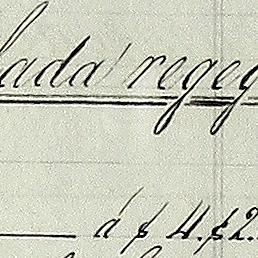 lada regeg
á $ 4. $ 2.